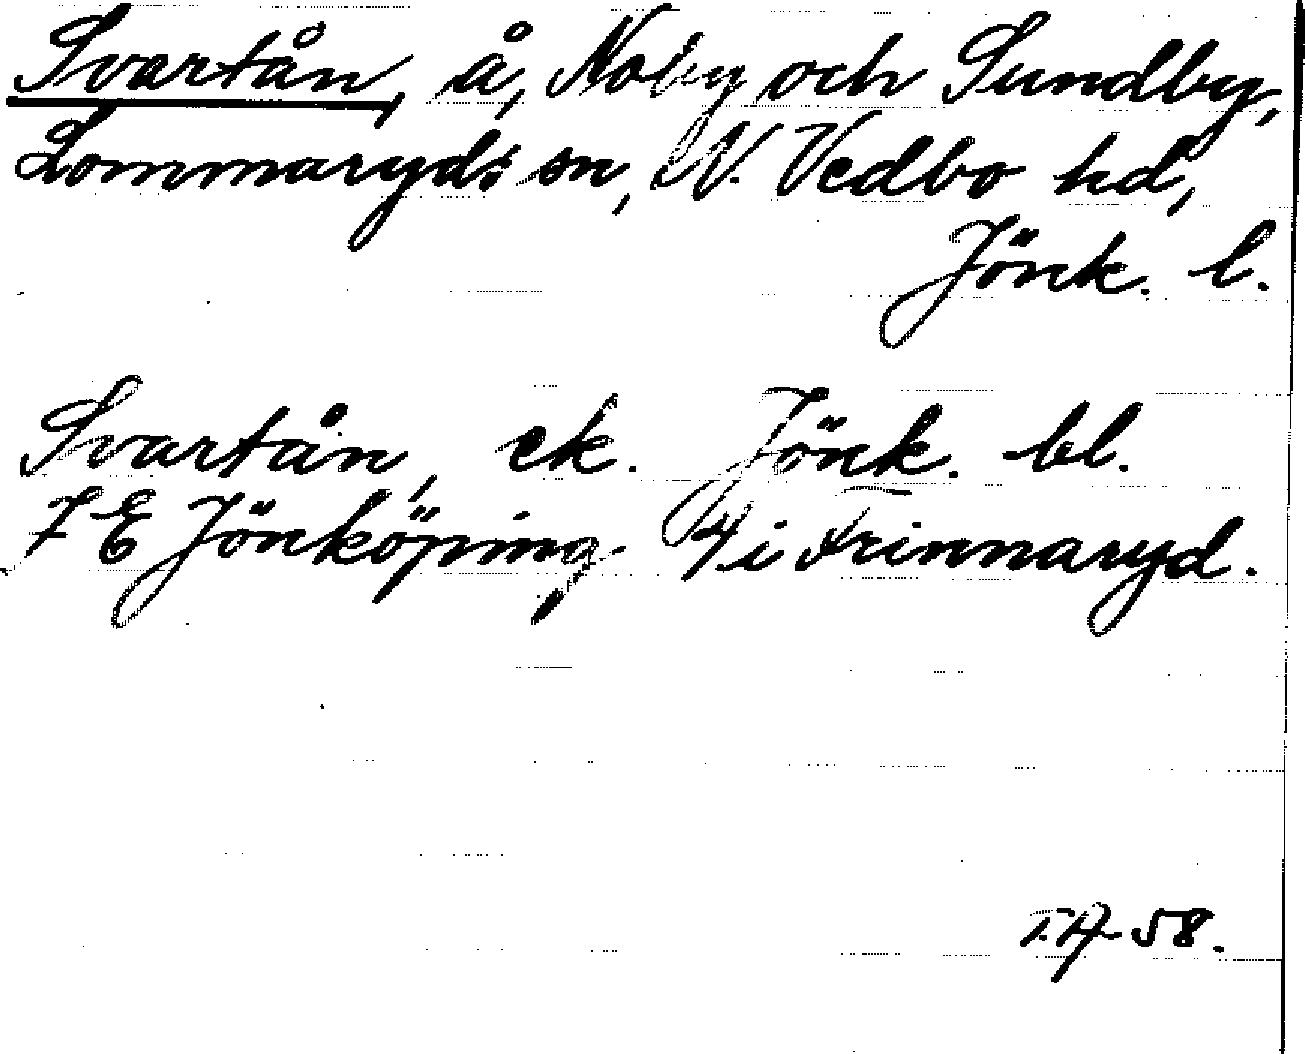 Svartån, å, Noby och Sundby,
Lommaryds sn, N. Vedbo hd,
Jönk. l.
Svartån, ek. Jönk. bl.
7 E Jönköping 4 i Frinnaryd.
58.